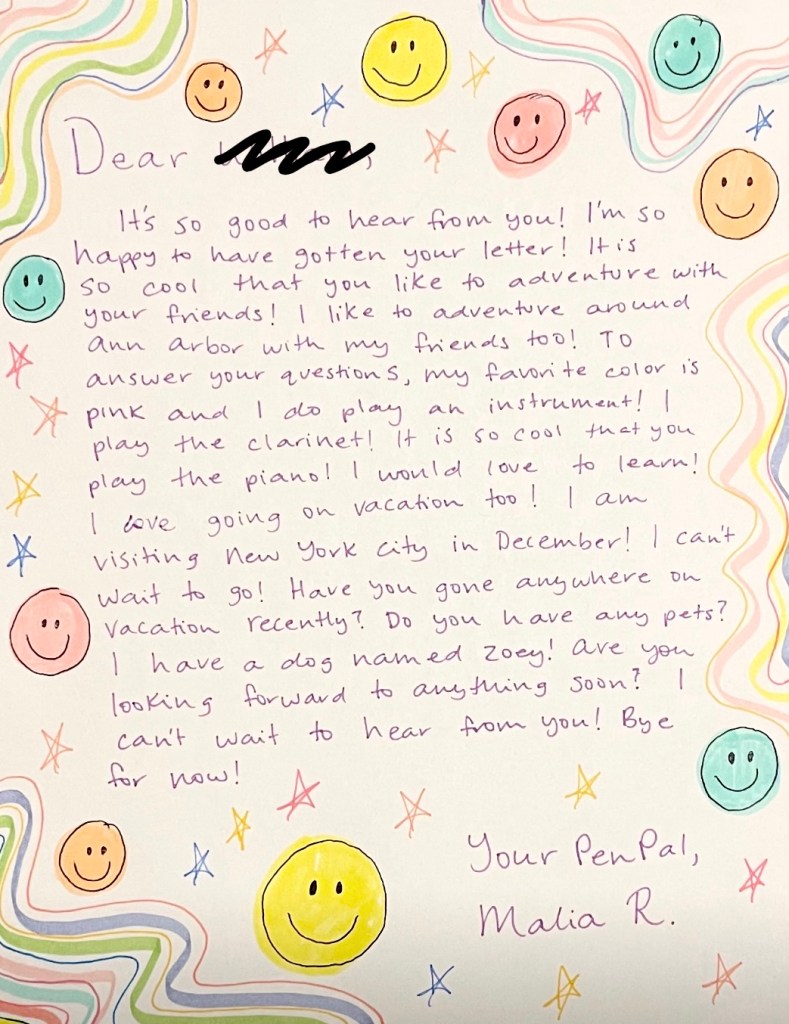 Dear
It's so good to hear from you! I'm so
happy to have gotten your letter! It is
so cool that you like to adventure with
your friends! I like to adventure around
ann arbor with my friends too! To
answer your questions, my favorite color is
pink and I do play an instrument! I
play the clarinet! It is so cool that you
play the piano! I would love to learn!
I love going on vacation too! I am
visiting New York City in December! I can't
wait to go! Have you gone anywhere on
vacation recently? Do you have any pets?
I have a dog named Zoey! Are you
looking forward to anything soon? I
can't wait to hear from you! Bye
for now!
Your PenPal,
Malia R.